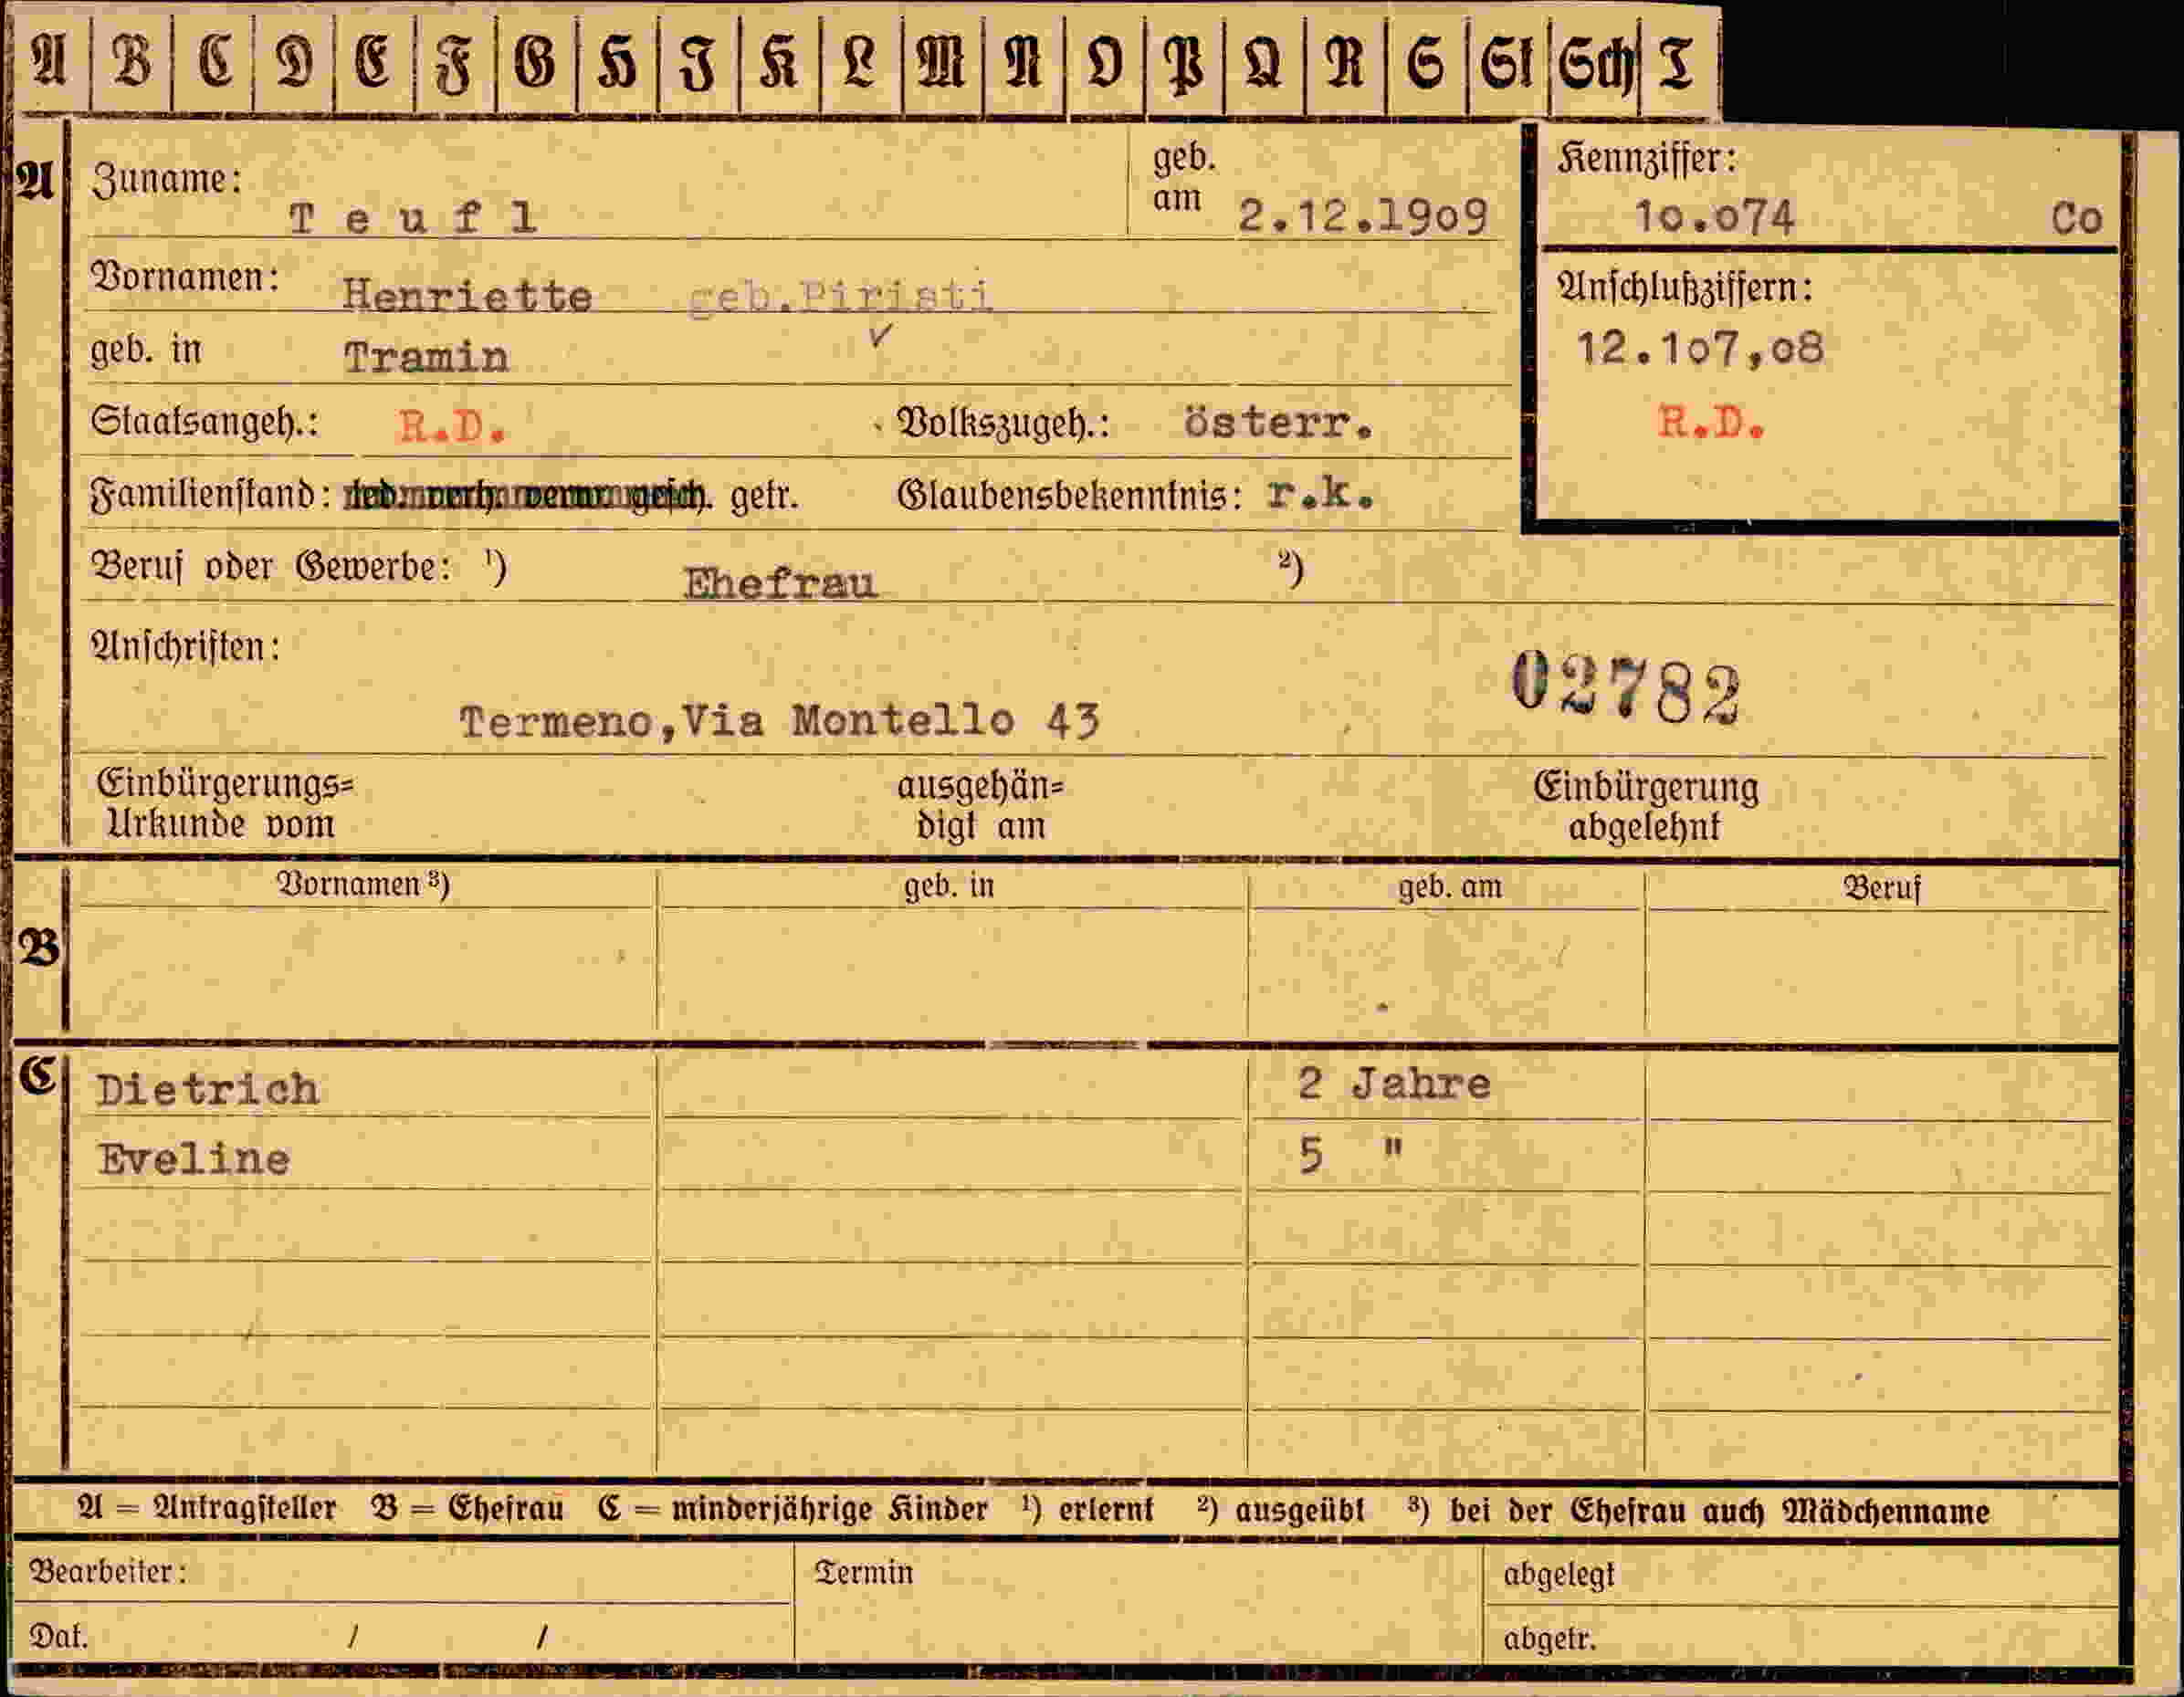 A B C D E F G H I K L M N O P Q R S St Sch T
A Zuname: Teufl geb. am 2.12.1909
Kennziffer: 10.074 Co
Vornamen: Henriette geb.Piristi
Anschlußziffern:
12.107,08
R.D.
geb. in Tramin
Staatsangeh.: R.D. Volkszugeh.: österr.
Familienstand: getr. Glaubensbekenntnis: r.k.
Beruf oder Gewerbe: ¹) Ehefrau ²)
Anschriften:
02782
Termeno,Via Montello 43
Einbürgerungs=
Urkunde vom
ausgehän=
digt am
Einbürgerung
abgelehnt
B Vornamen ³) geb. in geb. am Beruf
C Dietrich 2 Jahre
Eveline 5 "
A = Antragsteller B = Ehefrau C = minderjährige Kinder ¹) erlernt ²) ausgeübt ³) bei der Ehefrau auch Mädchenname
Bearbeiter: Termin abgelegt
Dat. / / abgetr.